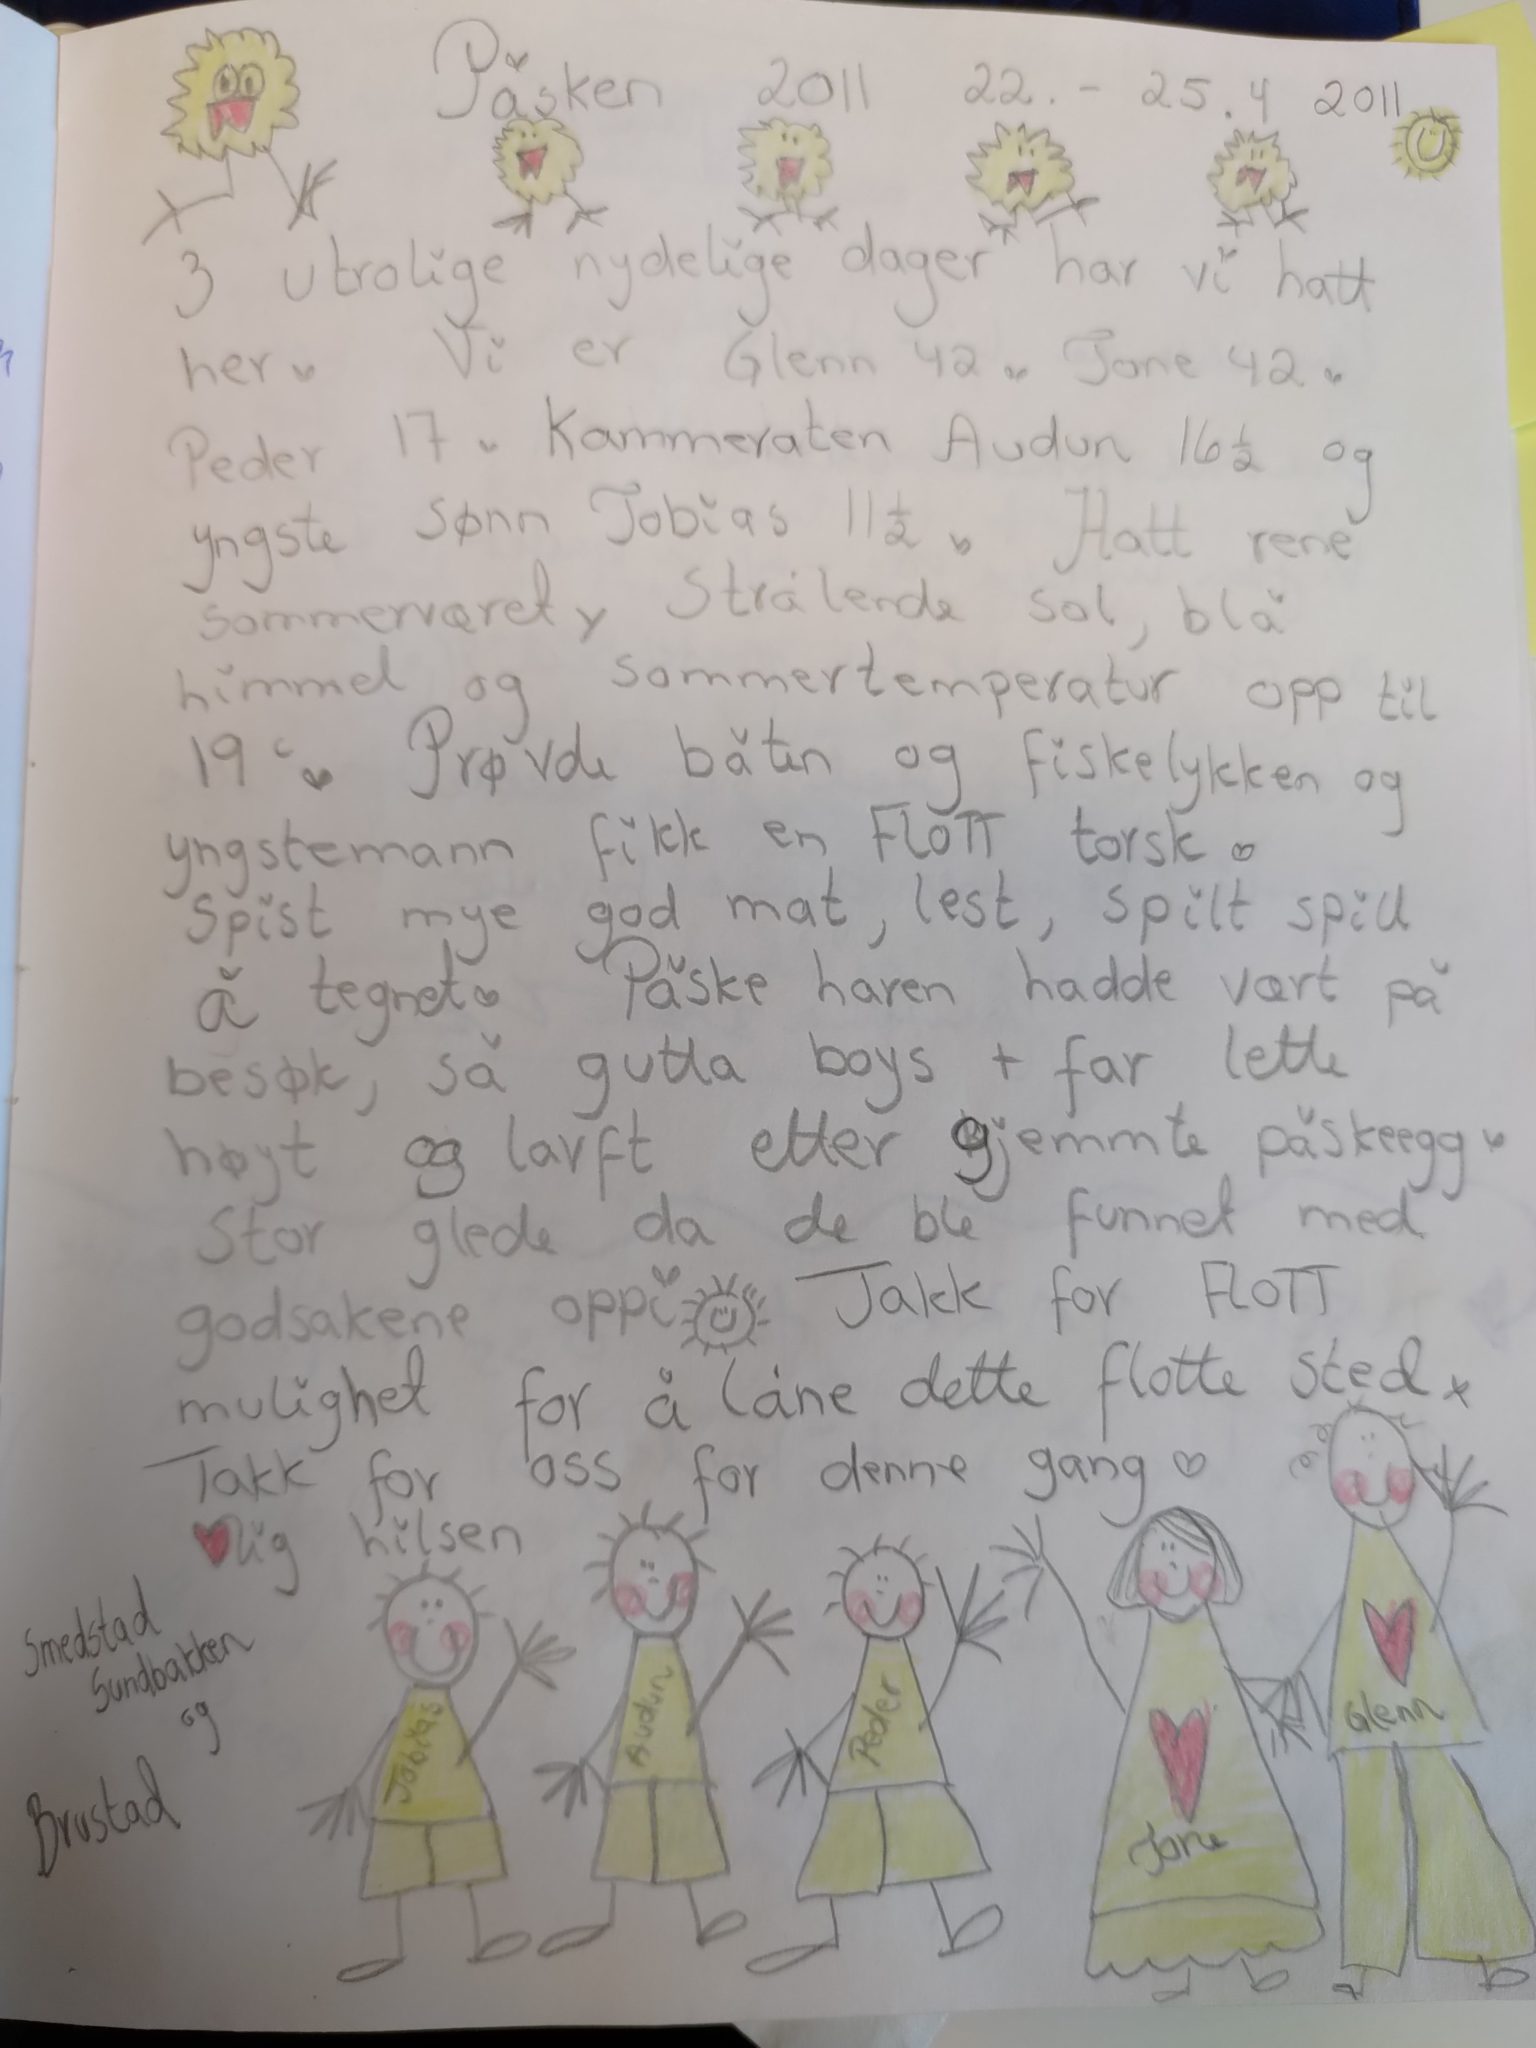 Påsken 2011 22. - 25.4 2011
3 utrolige nydelige dager har vi hatt
her. Vi er Glenn 42. Tone 42.
Peder 17. Kammeraten Audun 16½ og
yngste sønn Tobias 11½. Hatt rene
sommerværet, Strålende sol, blå
himmel og sommertemperatur opp til
19 c. Prøvde båten og fiskelykken og
yngstemann fikk en FLOTT torsk.
Spist mye god mat, lest, spilt spill
å tegnet. Påske haren hadde vært på
besøk, så gutta boys + far lette
høyt og lavft etter gjemmte påskeegg.
Stor glede da de ble funnet med
godsakene oppi Takk for FLOTT
mulighet for å låne dette flotte sted.
Takk for oss for denne gang
♥lig hilsen
Smedstad
Sundbakken
og
Brustad
Tobias
Audun
Peder
Tone
Glenn